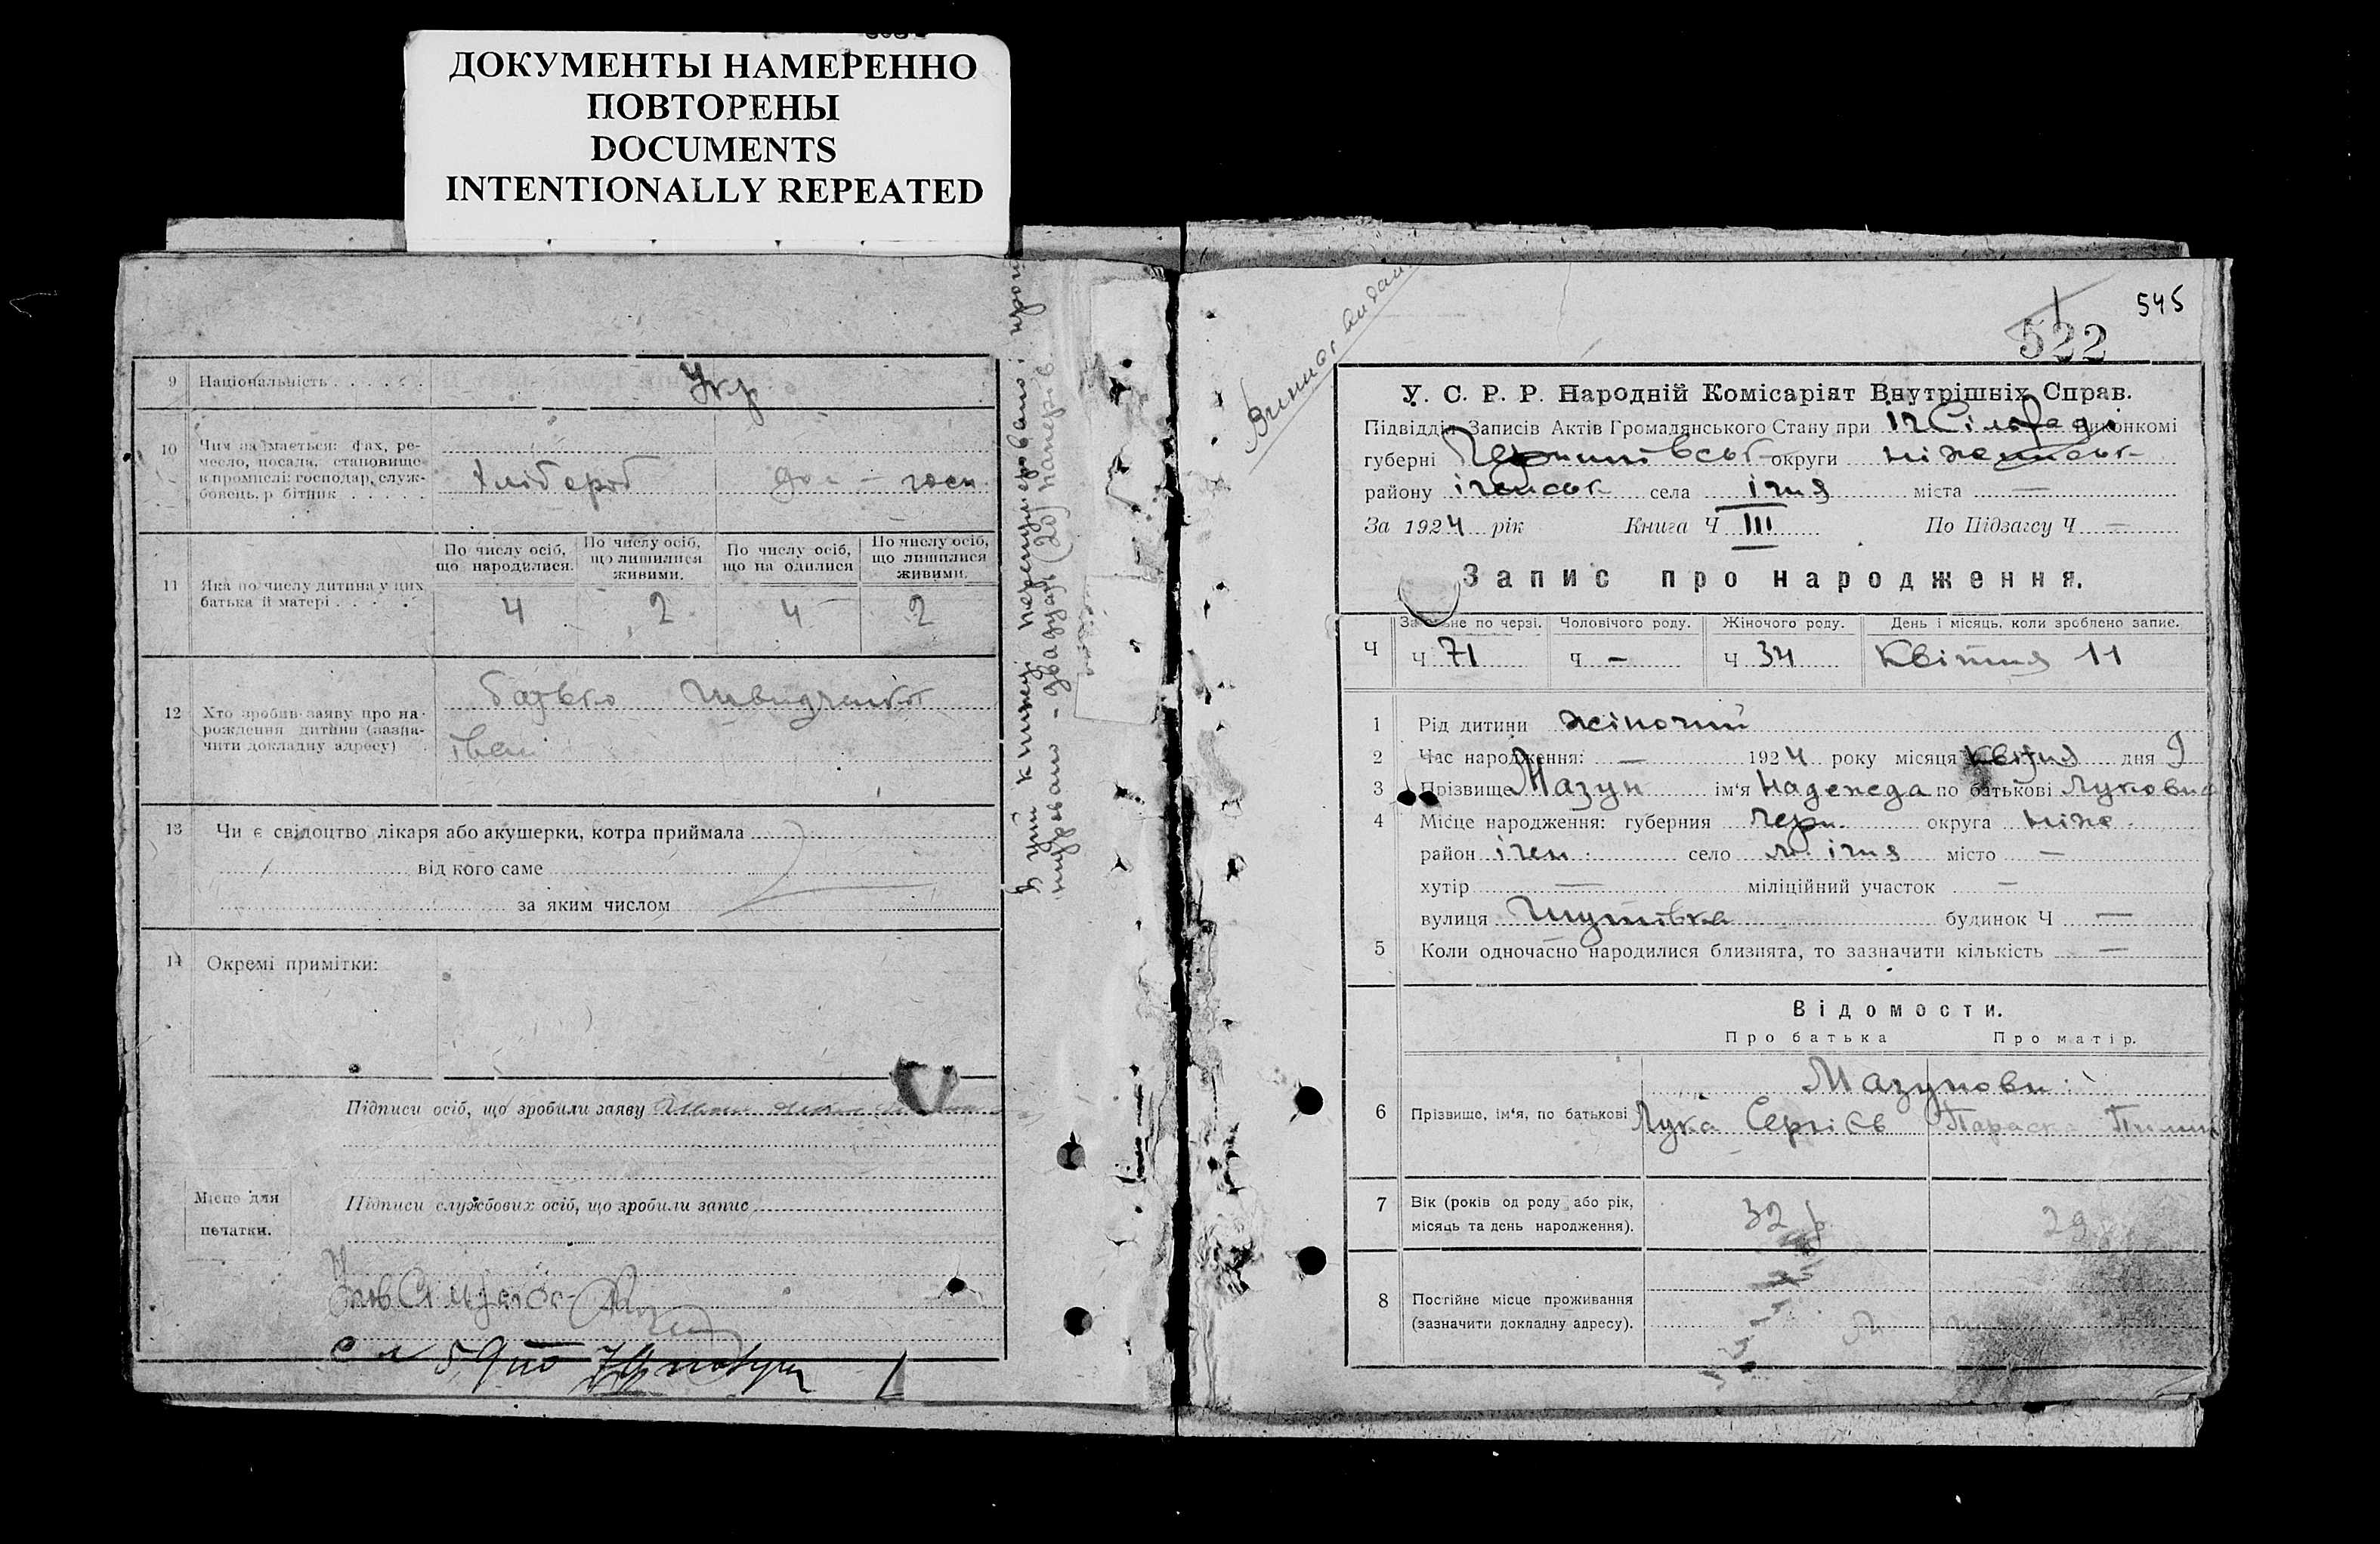 ДОКУМЕНТЫ НАМЕРЕННО
ПОВТОРЕНЫ
DOCUMENTS
INTENTIONALLY REPEATED
9 Національність . . . . . . Укр
10 Чим займається: фах, ре-
месло, посада, становище
в промислі: господар, служ-
бовець, р бітник . . . . . Хлібороб дом - госп
11 Яка по числу дитина у цих
батька й матері . . . . .
По числу осіб, що народилися. По числу осіб, що лишилися живими. По числу осіб, що на одилися По числу осіб, що лишилися живими.
4 2 4 2
12 Хто зробив заяву про на-
рождення дитини (зазна-
чити докладну адресу)
батько
іван
13 Чи є свідоцтво лікаря або акушерки, котра приймала
від кого саме
за яким числом
14 Окремі примітки:
Підписи осіб, що зробили заяву
Місце для
печатки.
Підписи службових осіб, що зробили запис
В цій книжці перенумеровано і
двадцять (20) папер.
545
522
У. С. Р. Р. Народній Комісаріят Внутрішніх Справ.
Підвідділ Записів Актів Громадянського Стану при Іч Сільраді виконкомі
губерні Чернигівськ округи ніженськ
району ічнськ села ічня міста —
За 1924 рік Книга Ч III По Підзагсу Ч —
Запис про народження.
Ч За не по черзі. Чоловічого роду. Жіночого роду. День і місяць, коли зроблено запис.
Ч 71 Ч — Ч 34 Квітня 11
1 Рід дитини жіночий
2 Час народження: — 1924 року місяця Квітня дня 9
3 Прізвище Мазун ім'я Надежда по батькові Луковна
4 Місце народження: губерния Черн. округа ніже.
район ічен. село м. ічня місто —
хутір — міліційний участок —
вулиця будинок Ч —
5 Коли одночасно народилися близнята, то зазначити кількість —
Відомости.
Про батька Про матір.
Мазунови:
6 Прізвище, ім'я, по батькові Лука Сергієв Параска
7 Вік (років од роду або рік,
місяць та день народження). 32 р 29
8 Постійне місце проживання
(зазначити докладну адресу).